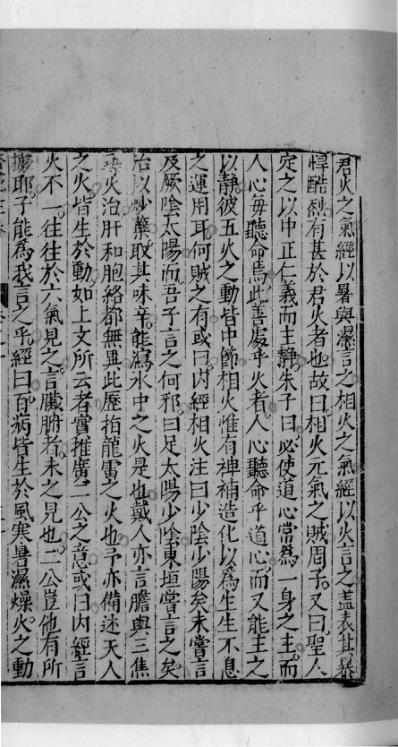 君火之氣經以暑與濕言之相火之氣經以火言之蓋表其暴
悍酷烈有甚於君火者也故曰相火元氣之賊周子又曰聖人
定之以中正仁義而主靜朱子曰必使道心常為一身之主而
人心每聽命焉此善處乎火者人心聽命乎道心而又能主之
以靜彼五火之動皆中節相火惟有裨補造化以為生生不息
之運用耳何賊之有或曰內經相火注曰少陰少陽矣未嘗言
及厥陰太陽而吾子言之何邪曰足太陽少陰東垣嘗言之矣
治以炒蘗取其味辛能瀉水中之火是也戴人亦言膽與三焦
尋火治肝和胞絡都無異此歷指龍雷之火也予亦備述天人
之火皆生於動如上文所云者實推廣二公之意或曰內經言
火不一往往於六氣見之言臟腑者未之見也二公豈他有所
據耶子能為我言之乎經曰百病皆生於風寒暑濕燥火之動